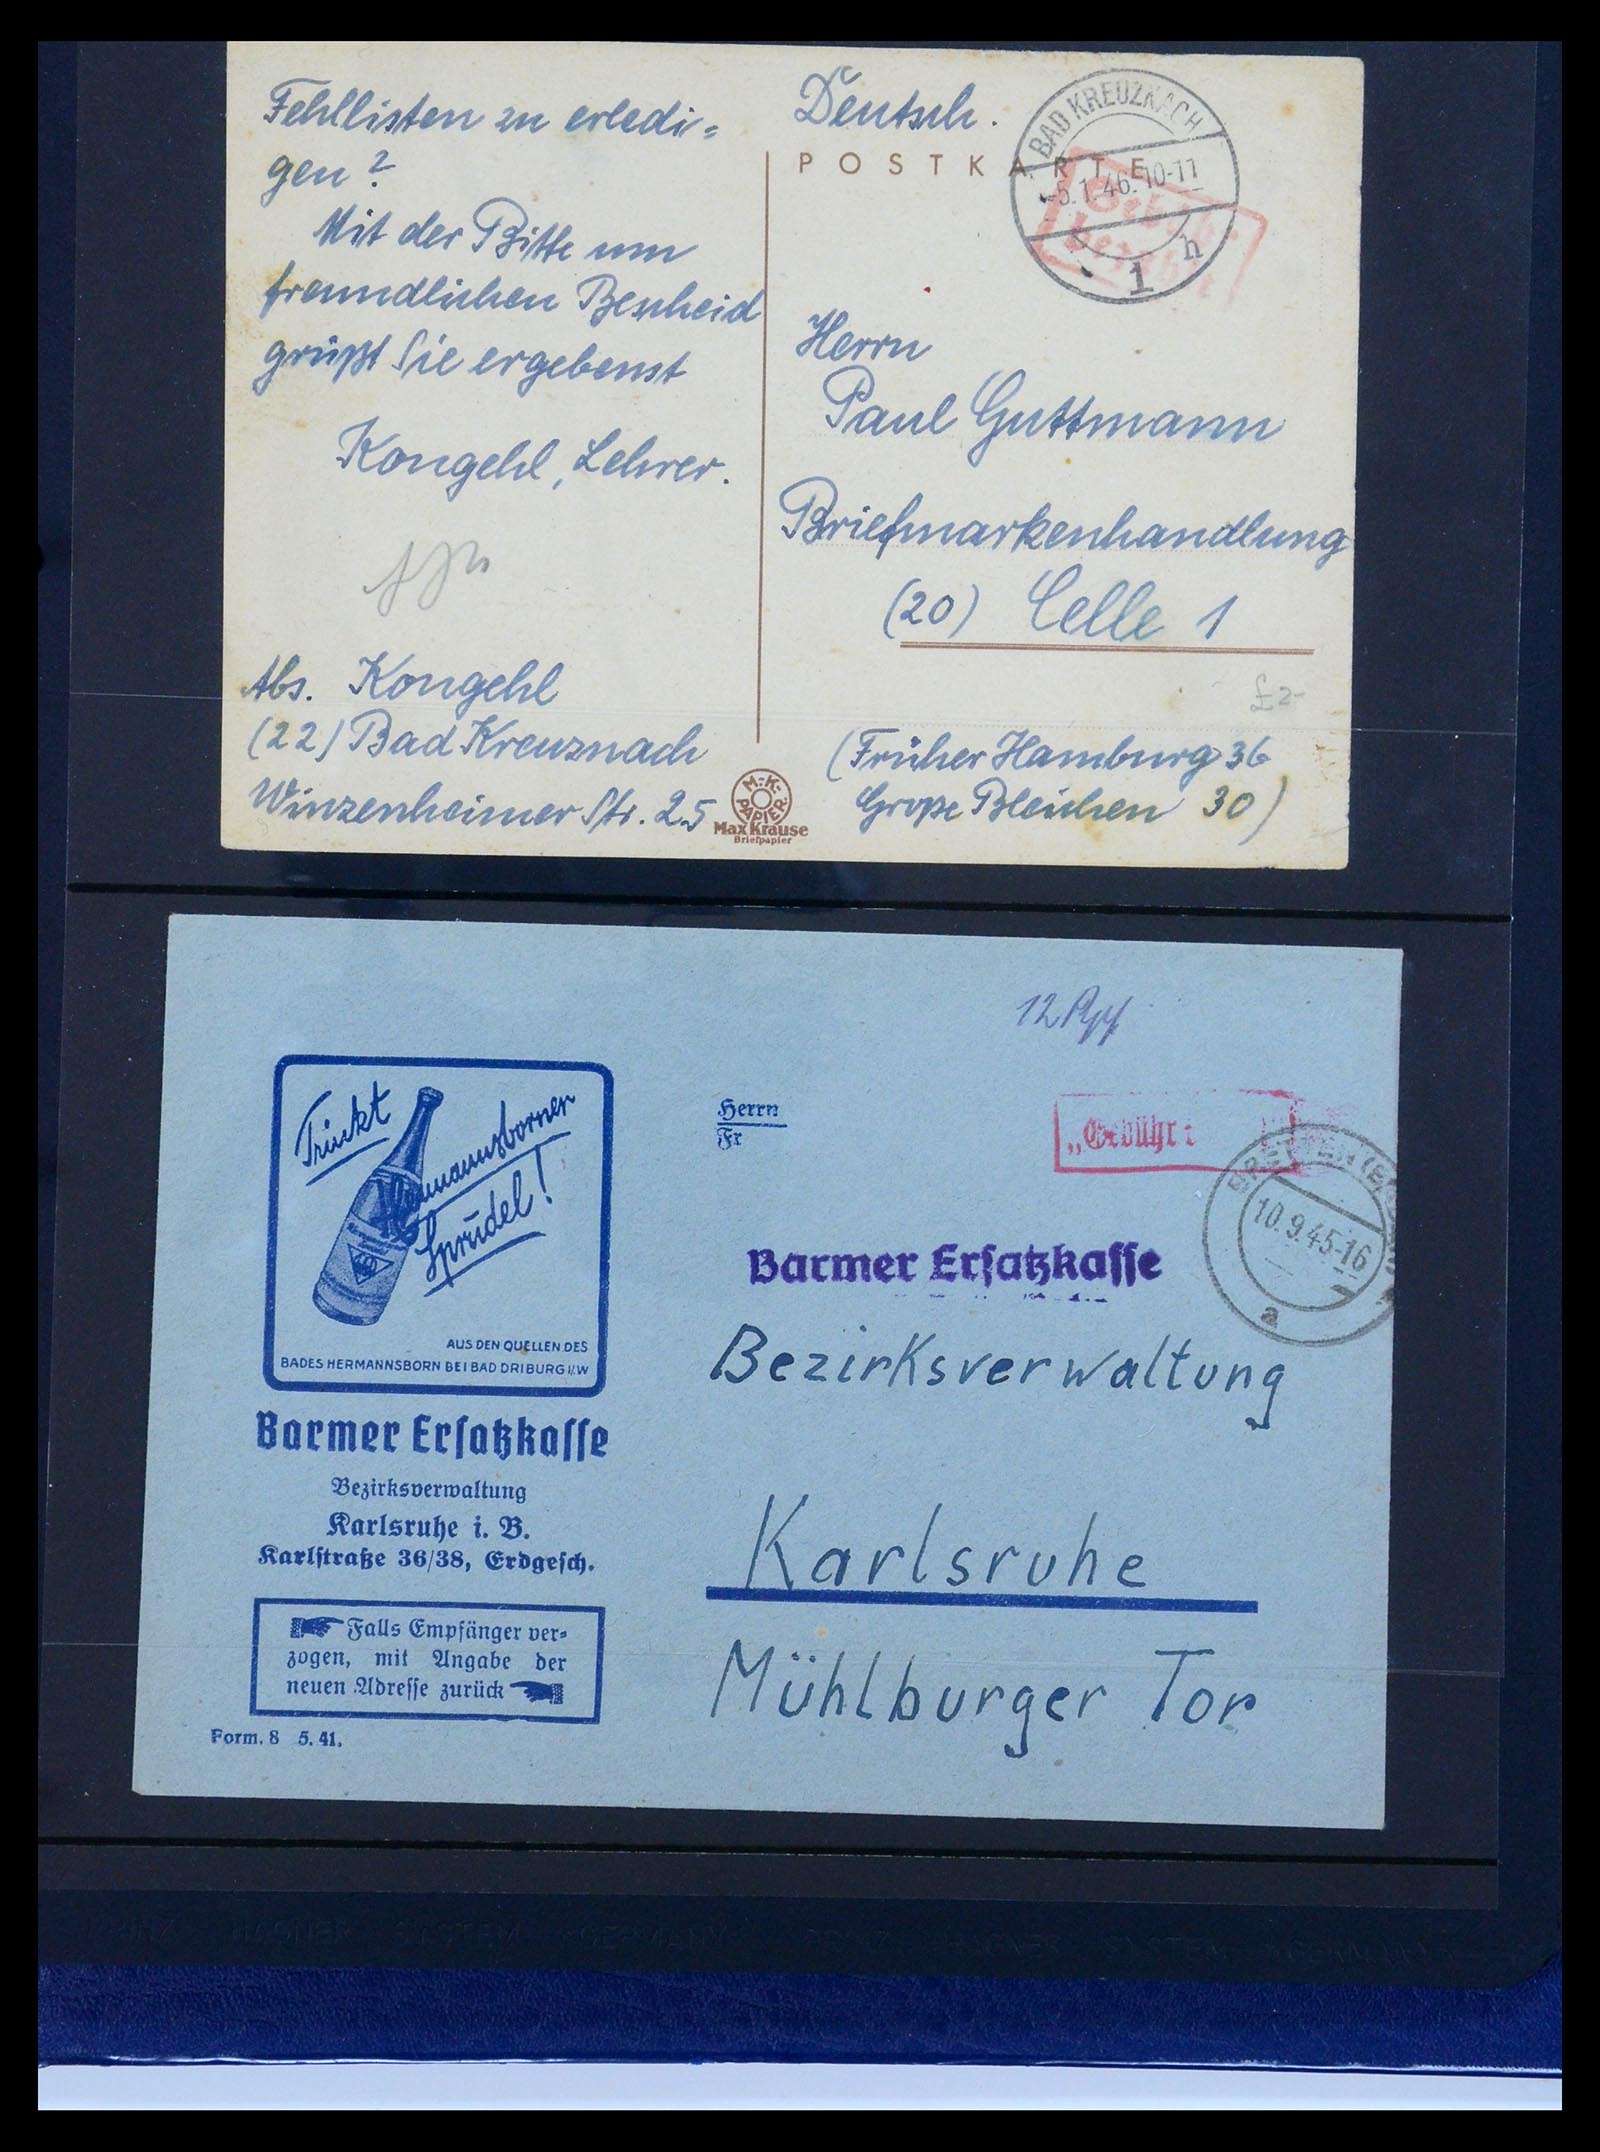 Fehllisten zu erledi=
gen?
Mit der Bitte um
freundlichen Bescheid
grüßt Sie ergebenst
Kongehl, Lehrer.
Abs. Kongehl
(22) Bad Kreuznach
Winzenheimer Str. 25
M.-K.-
PAPIER.
Max Krause
Briefpapier
Deutsch.
POSTKARTE
BAD KREUZNACH
-5.1.46.10-11
1 h
Herrn
Paul Guttmann
Briefmarkenhandlung
(20) Celle 1
£2-
(Früher Hamburg 36
Große Bleichen 30)
12 Rpf
Trinkt
Hermannsborner
Sprudel!
AUS DEN QUELLEN DES
BADES HERMANNSBORN BEI BAD DRIBURG i/W
Barmer Erſatzkaſſe
Bezirksverwaltung
Karlsruhe i. B.
Karlſtraße 36/38, Erdgeſch.
Falls Empfänger ver-
zogen, mit Angabe der
neuen Adreſſe zurück
Form. 8 5. 41.
Herrn
Fr
„Gebühr
10.9.45-16
a
Barmer Erſatzkaſſe
Bezirksverwaltung
Karlsruhe
Mühlburger Tor